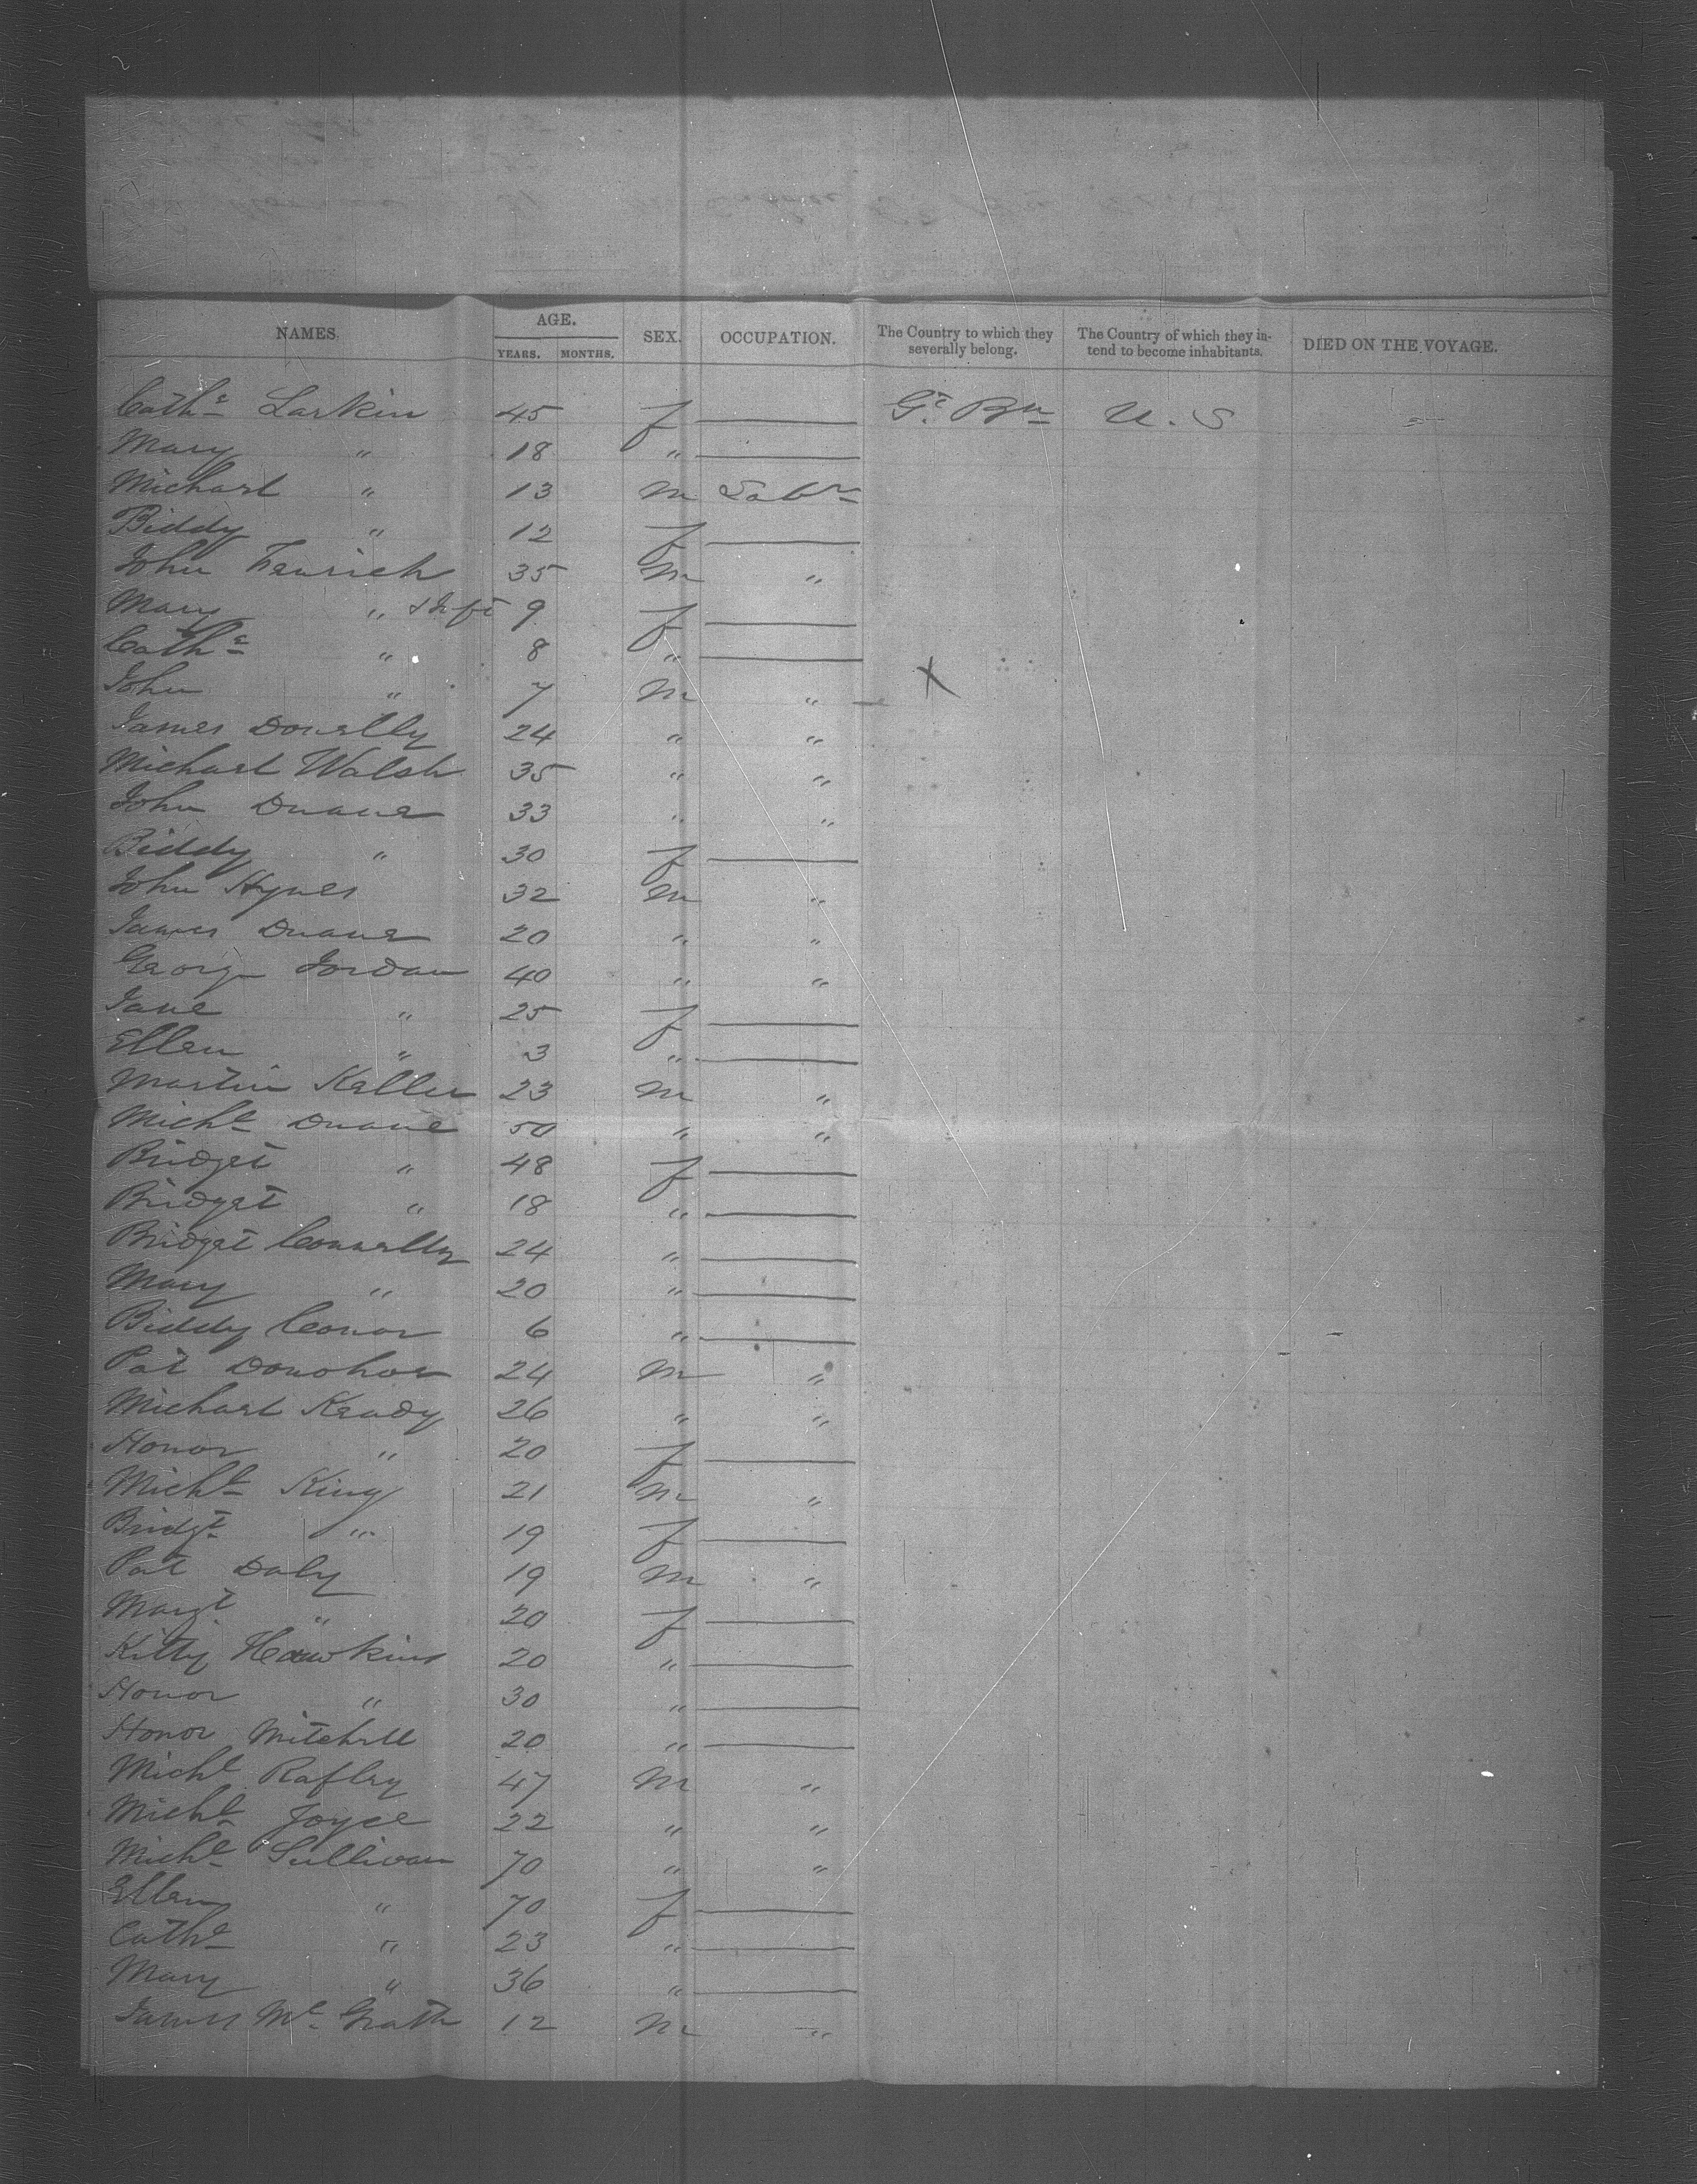 NAMES. AGE. SEX. OCCUPATION. The Country to which they severally belong. The Country of which they intend to become inhabitants. DIED ON THE VOYAGE.
YEARS. MONTHS.
Cathe Larkin 45 f — Gt. Bn U. S
Mary " 18 " —
Michael " 13 m Labr
Biddy " 12 f —
John 35 m "
Mary " & Inft 9 f —
Cathe " 8 " —
John " 7 m " X
James Donelly 24 " "
Michael Walsh 35 " "
John Duane 33 " "
Biddy " 30 f —
John Hynes 32 m "
James Duane 20 " "
George Jordan 40 " "
Jane " 25 f —
Ellen " 3 " —
Martin Keller 23 m "
Michl Duane 50 " "
Bridget " 48 f —
Bridget " 18 " —
Bridget Connelly 24 " —
Mary " 20 " —
Biddy Conor 6 " —
Pat Donohoe 24 m "
Michael Keady 26 " "
Honor " 20 f —
Michl King 21 m "
Bridgt " 19 f —
Pat Daly 19 m "
Margt " 20 f —
Kitty Hawkins 20 " —
Honor " 30 " —
Honor Mitchell 20 " —
Michl Rafley 47 m "
Michl Joyce 22 " "
Michl Sullivan 70 " "
Ellen " 70 f —
Cathe " 23 " —
Mary " 36 " —
James Mc Grath 12 m "